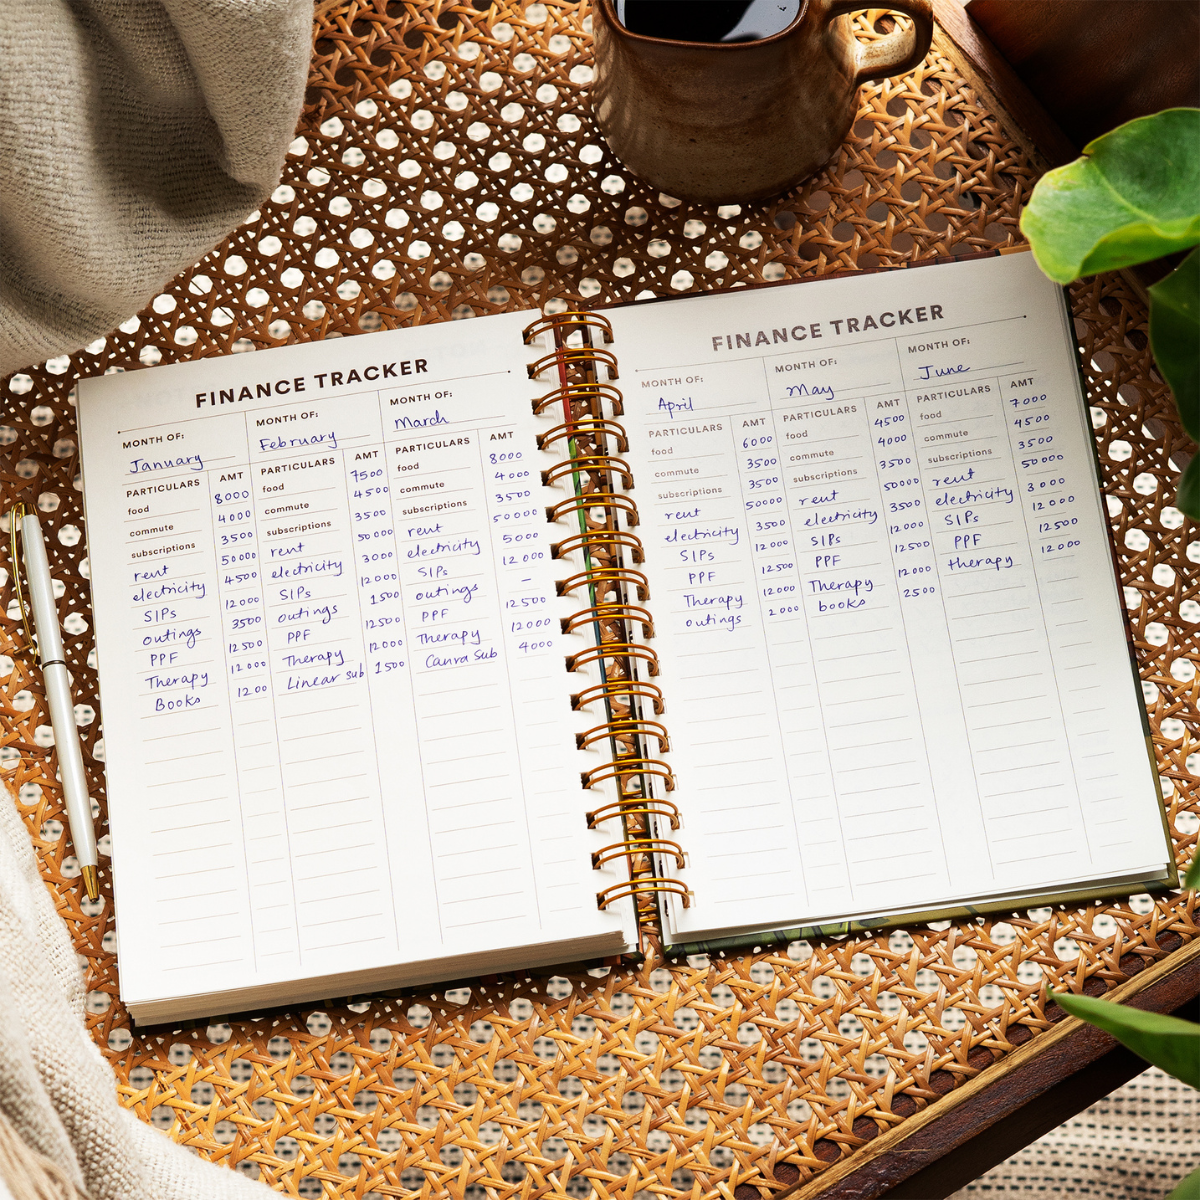 FINANCE TRACKER
MONTH OF:
January
PARTICULARS AMT
food 8000
commute 4000
subscriptions 3500
rent 50000
electricity 4500
SIPs 12000
outings 3500
PPF 12500
Therapy 12000
Books 1200
MONTH OF:
February
PARTICULARS AMT
food 7500
commute 4500
subscriptions 3500
rent 50000
electricity 3000
SIPs 12000
outings 1500
PPF 12500
Therapy 12000
Linear sub 1500
MONTH OF:
March
PARTICULARS AMT
food 8000
commute 4000
subscriptions 3500
rent 50000
electricity 5000
SIPs 12000
outings –
PPF 12500
Therapy 12000
Canva sub 4000
FINANCE TRACKER
MONTH OF:
April
PARTICULARS AMT
food 6000
commute 3500
subscriptions 3500
rent 50000
electricity 3500
SIPs 12000
PPF 12500
Therapy 12000
outings 2000
MONTH OF:
May
PARTICULARS AMT
food 4500
commute 4000
subscriptions 3500
rent 50000
electricity 3500
SIPs 12000
PPF 12500
Therapy 12000
books 2500
MONTH OF:
June
PARTICULARS AMT
food 7000
commute 4500
subscriptions 3500
rent 50000
electricity 3000
SIPs 12000
PPF 12500
therapy 12000